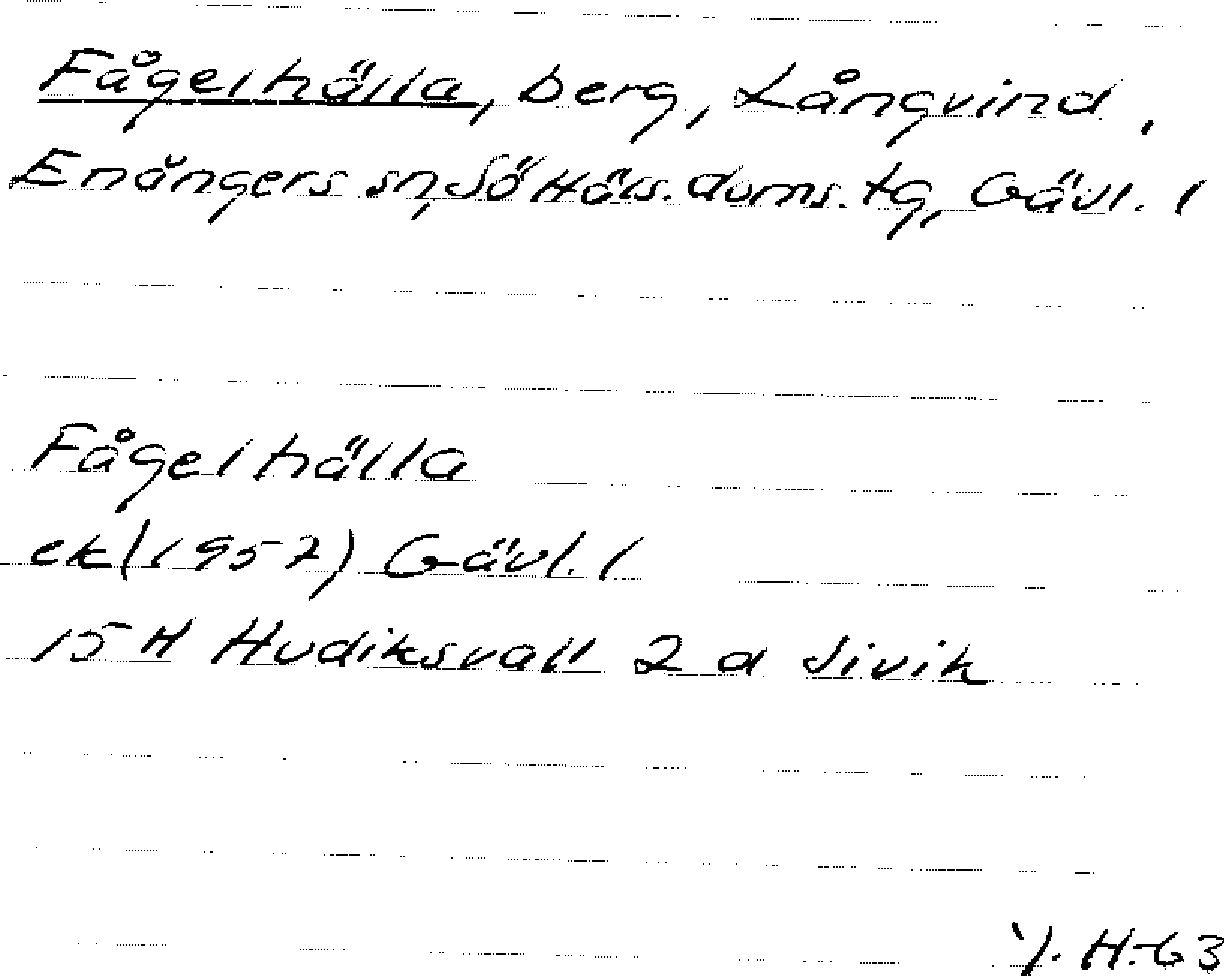 Fågelhälla, berg, Långvind,
Enångers sn, Sö Häls. doms. tg, Gävl. l
Fågelhälla
ek (1957) Gävl. l
15 H Hudiksvall 2 d Sivik
H-63